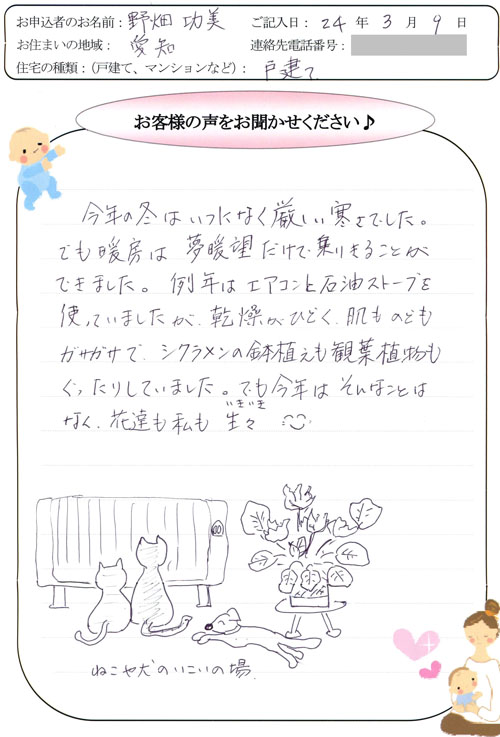 お申込者のお名前：野畑 功美 ご記入日：24年3月9日
お住まいの地域：愛知 連絡先電話番号：
住宅の種類：（戸建て、マンションなど）：戸建て
お客様の声をお聞かせください♪
今年の冬はいつになく厳しい寒さでした。
でも暖房は夢暖望だけで乗りきることが
できました。例年はエアコンと石油ストーブを
使っていましたが、乾燥がひどく、肌ものども
ガサガサで、シクラメンの鉢植えも観葉植物も
ぐったりしていました。でも今年はそんなことは
なく、花達も私も生々
いきいき
ねこや犬のいこいの場